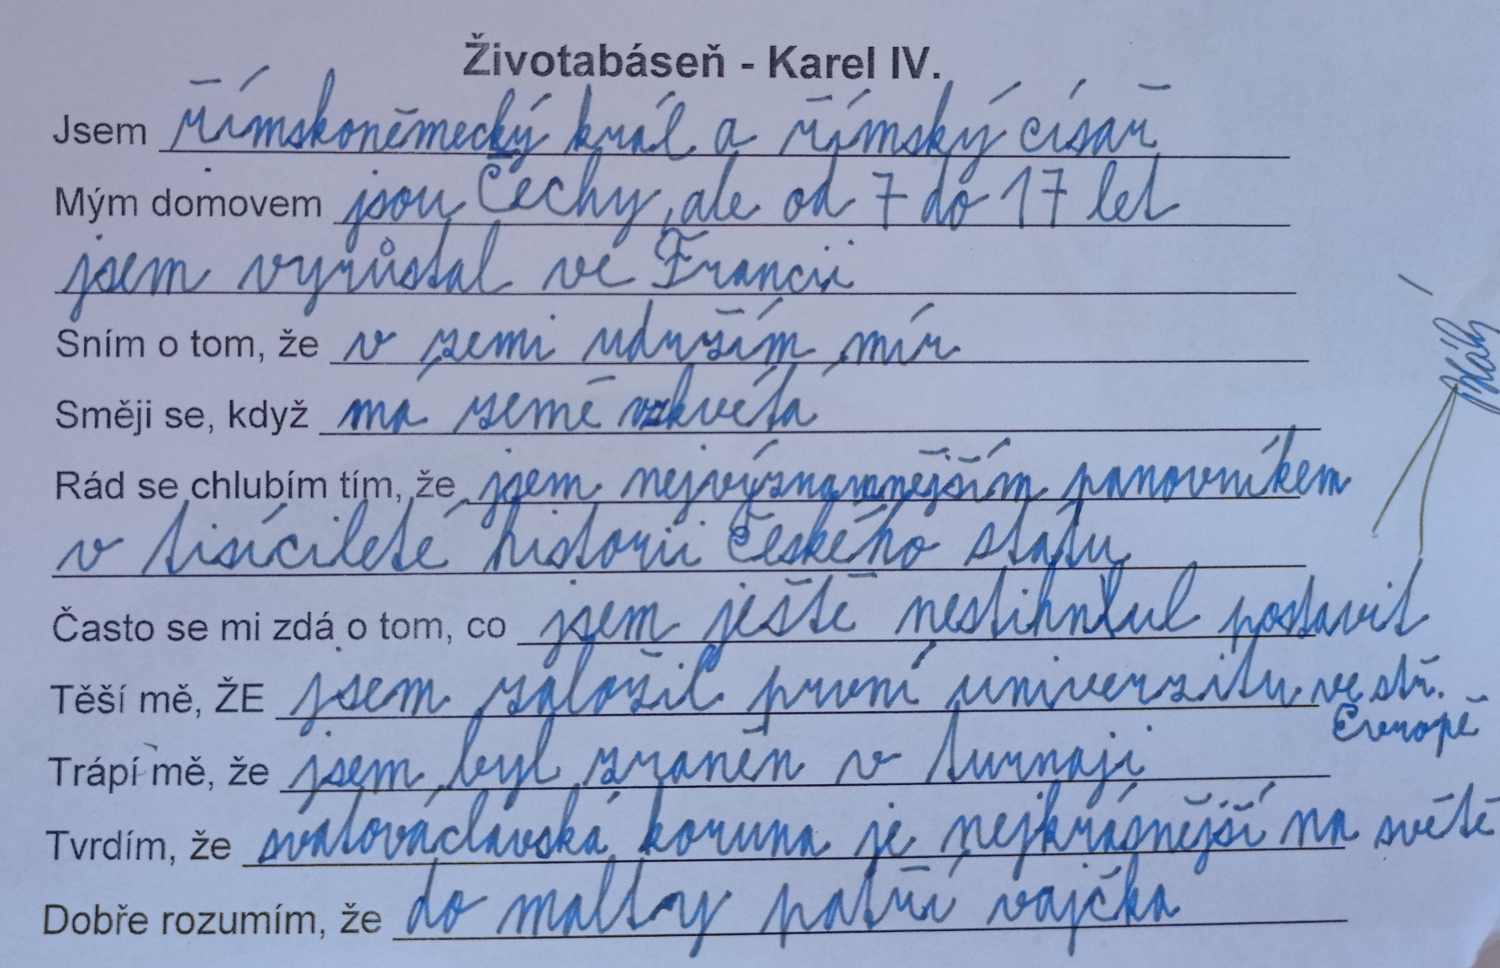 Životabáseň - Karel IV.
Jsem římskoněmecký král a římský císař
Mým domovem jsou Čechy, ale od 7 do 17 let
jsem vyrůstal ve Francii
Sním o tom, že v zemi udržím mír
Směji se, když má země vzkvétá
Rád se chlubím tím, že jsem nejvýznamnějším panovníkem
v tisícileté historii Českého státu
Často se mi zdá o tom, co jsem ještě nestihnul postavit
Těší mě, ŽE jsem založil první univerzitu ve stř.
Evropě
Trápí mě, že jsem byl zraněn v turnaji
Tvrdím, že svatováclavská koruna je nejkrásnější na světě
Dobře rozumím, že do malty patří vajčka